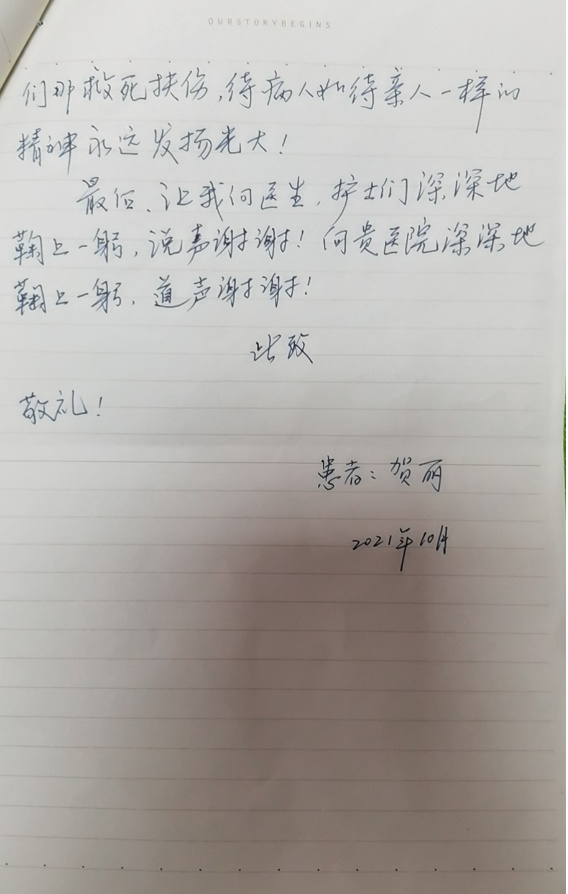 OURSTORYBEGINS
们那救死扶伤,待病人如待亲人一样的
精神永远发扬光大!
最后、让我向医生,护士们深深地
鞠上一躬,说声谢谢!向贵医院深深地
鞠上一躬,道声谢谢!
此致
敬礼!
患者:贺丽
2021年10月